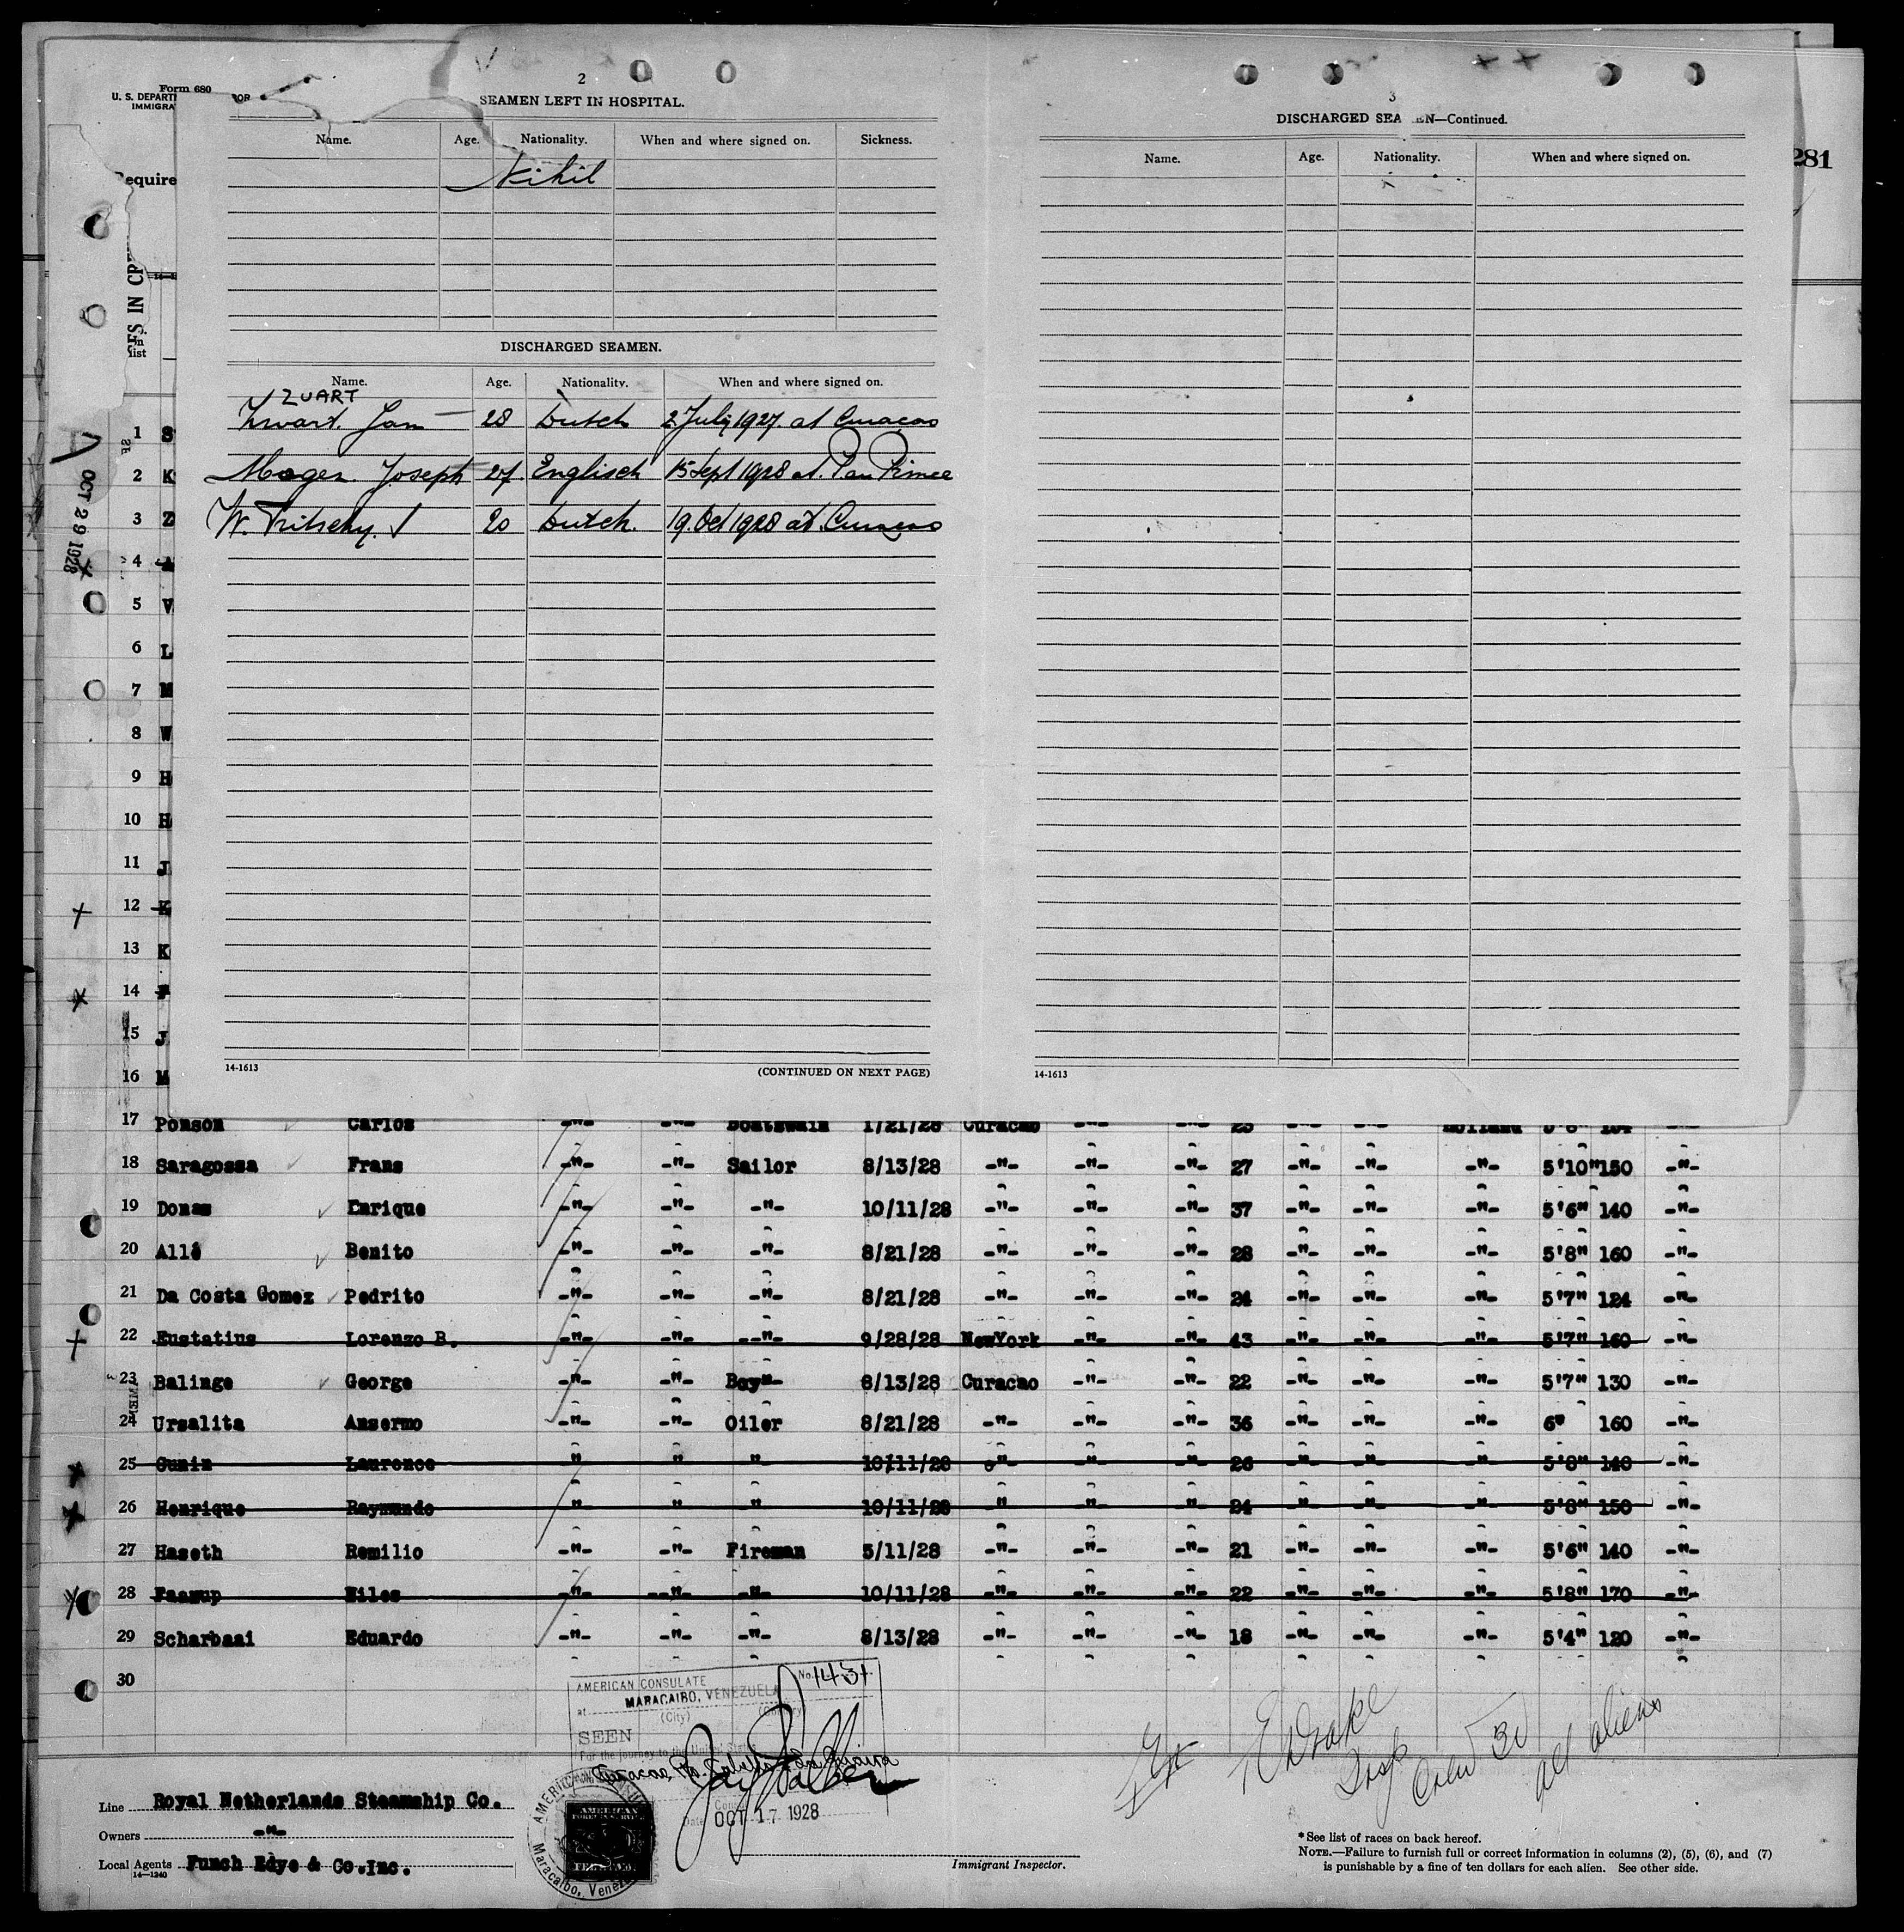 Form 680
U. S. DEPART
OR
IMMIGRA
Require
281
2
SEAMEN LEFT IN HOSPITAL.
Name. Age. Nationality. When and where signed on. Sickness.
Nihil
DISCHARGED SEAMEN.
Name. Age. Nationality. When and where signed on.
ZUART
Zwart. Jan 28 Dutch 2 July 1927. at Curacao
Joseph 27. Englisch 15 Sept 1928 at. Pau Prince
W. 20 Dutch. 19. Oct 1928 at. Curacao
14-1613
(CONTINUED ON NEXT PAGE)
3
DISCHARGED SEA EN—Continued.
Name. Age. Nationality. When and where signed on.
14-1613
list
OCT 29 1928
1 S
2 K
3 Z
4 A
5 V
6 L
7 M
8 W
9 H
10 H
11 J
12 K
13 K
14 F
15 J
16 M
17 Ponson Carlos -"- -"- Boatswain 1/21/28 Curacao -"- -"- 25 -"- -"- Holland 5'8" 154 -"-
18 Saragossa Frans -"- -"- Sailor 8/13/28 -"- -"- -"- 27 -"- -"- -"- 5'10" 150 -"-
19 Donas Enrique -"- -"- -"- 10/11/28 -"- -"- -"- 37 -"- -"- -"- 5'6" 140 -"-
20 Allé Benito -"- -"- -"- 8/21/28 -"- -"- -"- 28 -"- -"- -"- 5'8" 160 -"-
21 Da Costa Gomez Pedrito -"- -"- -"- 8/21/28 -"- -"- -"- 24 -"- -"- -"- 5'7" 124 -"-
22 Eustatius Lorenzo B. -"- -"- --"- 9/28/28 NewYork -"- -"- 43 -"- -"- -"- 5'7" 160 -"-
23 Balinge George -"- -"- Boy"- 8/13/28 Curacao -"- -"- 22 -"- -"- -"- 5'7" 130 -"-
24 Ursalita Ansermo -"- -"- Oiler 8/21/28 -"- -"- -"- 36 -"- -"- -"- 6" 160 -"-
25 Cunin Laurence " " " 10/11/28 -"- -"- -"- 26 -"- -"- -"- 5'8" 140 -"-
26 Henrique Raymundo " " " 10/11/28 -"- -"- -"- 24 -"- -"- -"- 5'8" 150 -"-
27 Haseth Remilio -"- -"- Fireman 5/11/28 -"- -"- -"- 21 -"- -"- -"- 5'6" 140 -"-
28 Faamup Niles -"- --"- -"- 10/11/28 -"- -"- -"- 22 -"- -"- -"- 5'8" 170 -"-
29 Scharbaai Eduardo -"- -"- -"- 8/13/28 -"- -"- -"- 18 -"- -"- -"- 5'4" 120 -"-
30
AMERICAN CONSULATE No. 1431
at MARACAIBO, VENEZUELA
(City) (Country)
SEEN
For the journey to the United States
Curacao, Pto. Cabello, La Guaira
Date OCT 17 1928
AMERICAN
FOREIGN SERVICE
Maracaibo, Venezuela
Ex Drake
Insp
30
all aliens
Line Royal Netherlands Steamship Co.
Owners -"-
Local Agents Funch Edye & Co.Inc.
14-1240
Immigrant Inspector.
* See list of races on back hereof.
NOTE.—Failure to furnish full or correct information in columns (2), (5), (6), and (7)
is punishable by a fine of ten dollars for each alien. See other side.